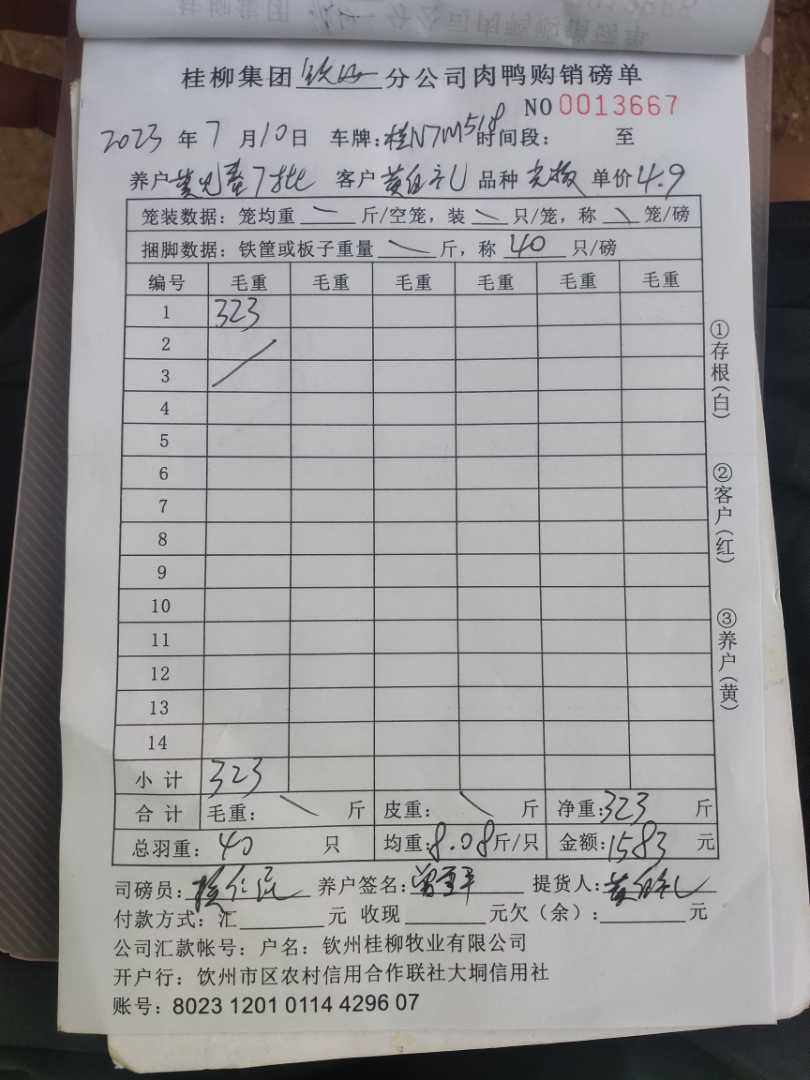 桂柳集团 钦州 分公司肉鸭购销磅单
NO 0013667
2023 年 7 月 10 日 车牌: 桂N7M518 时间段: 至
养户 黄 7批 客户 黄 礼 品种 单价 4.9
笼装数据: 笼均重 \ 斤/空笼, 装 \ 只/笼, 称 \ 笼/磅
捆脚数据: 铁筐或板子重量 \ 斤, 称 40 只/磅
编号 毛重 毛重 毛重 毛重 毛重 毛重
1 323
2
3
4
5
6
7
8
9
10
11
12
13
14
小 计 323
合 计 毛重: \ 斤 皮重: \ 斤 净重: 323 斤
总羽重: 40 只 均重: 8.08 斤/只 金额: 1583 元
司磅员: 养户签名: 提货人: 黄 礼
付款方式: 汇 元 收现 元欠(余): 元
公司汇款帐号: 户名: 钦州桂柳牧业有限公司
开户行: 饮州市区农村信用合作联社大垌信用社
账号: 8023 1201 0114 4296 07
①存根(白)
②客户(红)
③养户(黄)